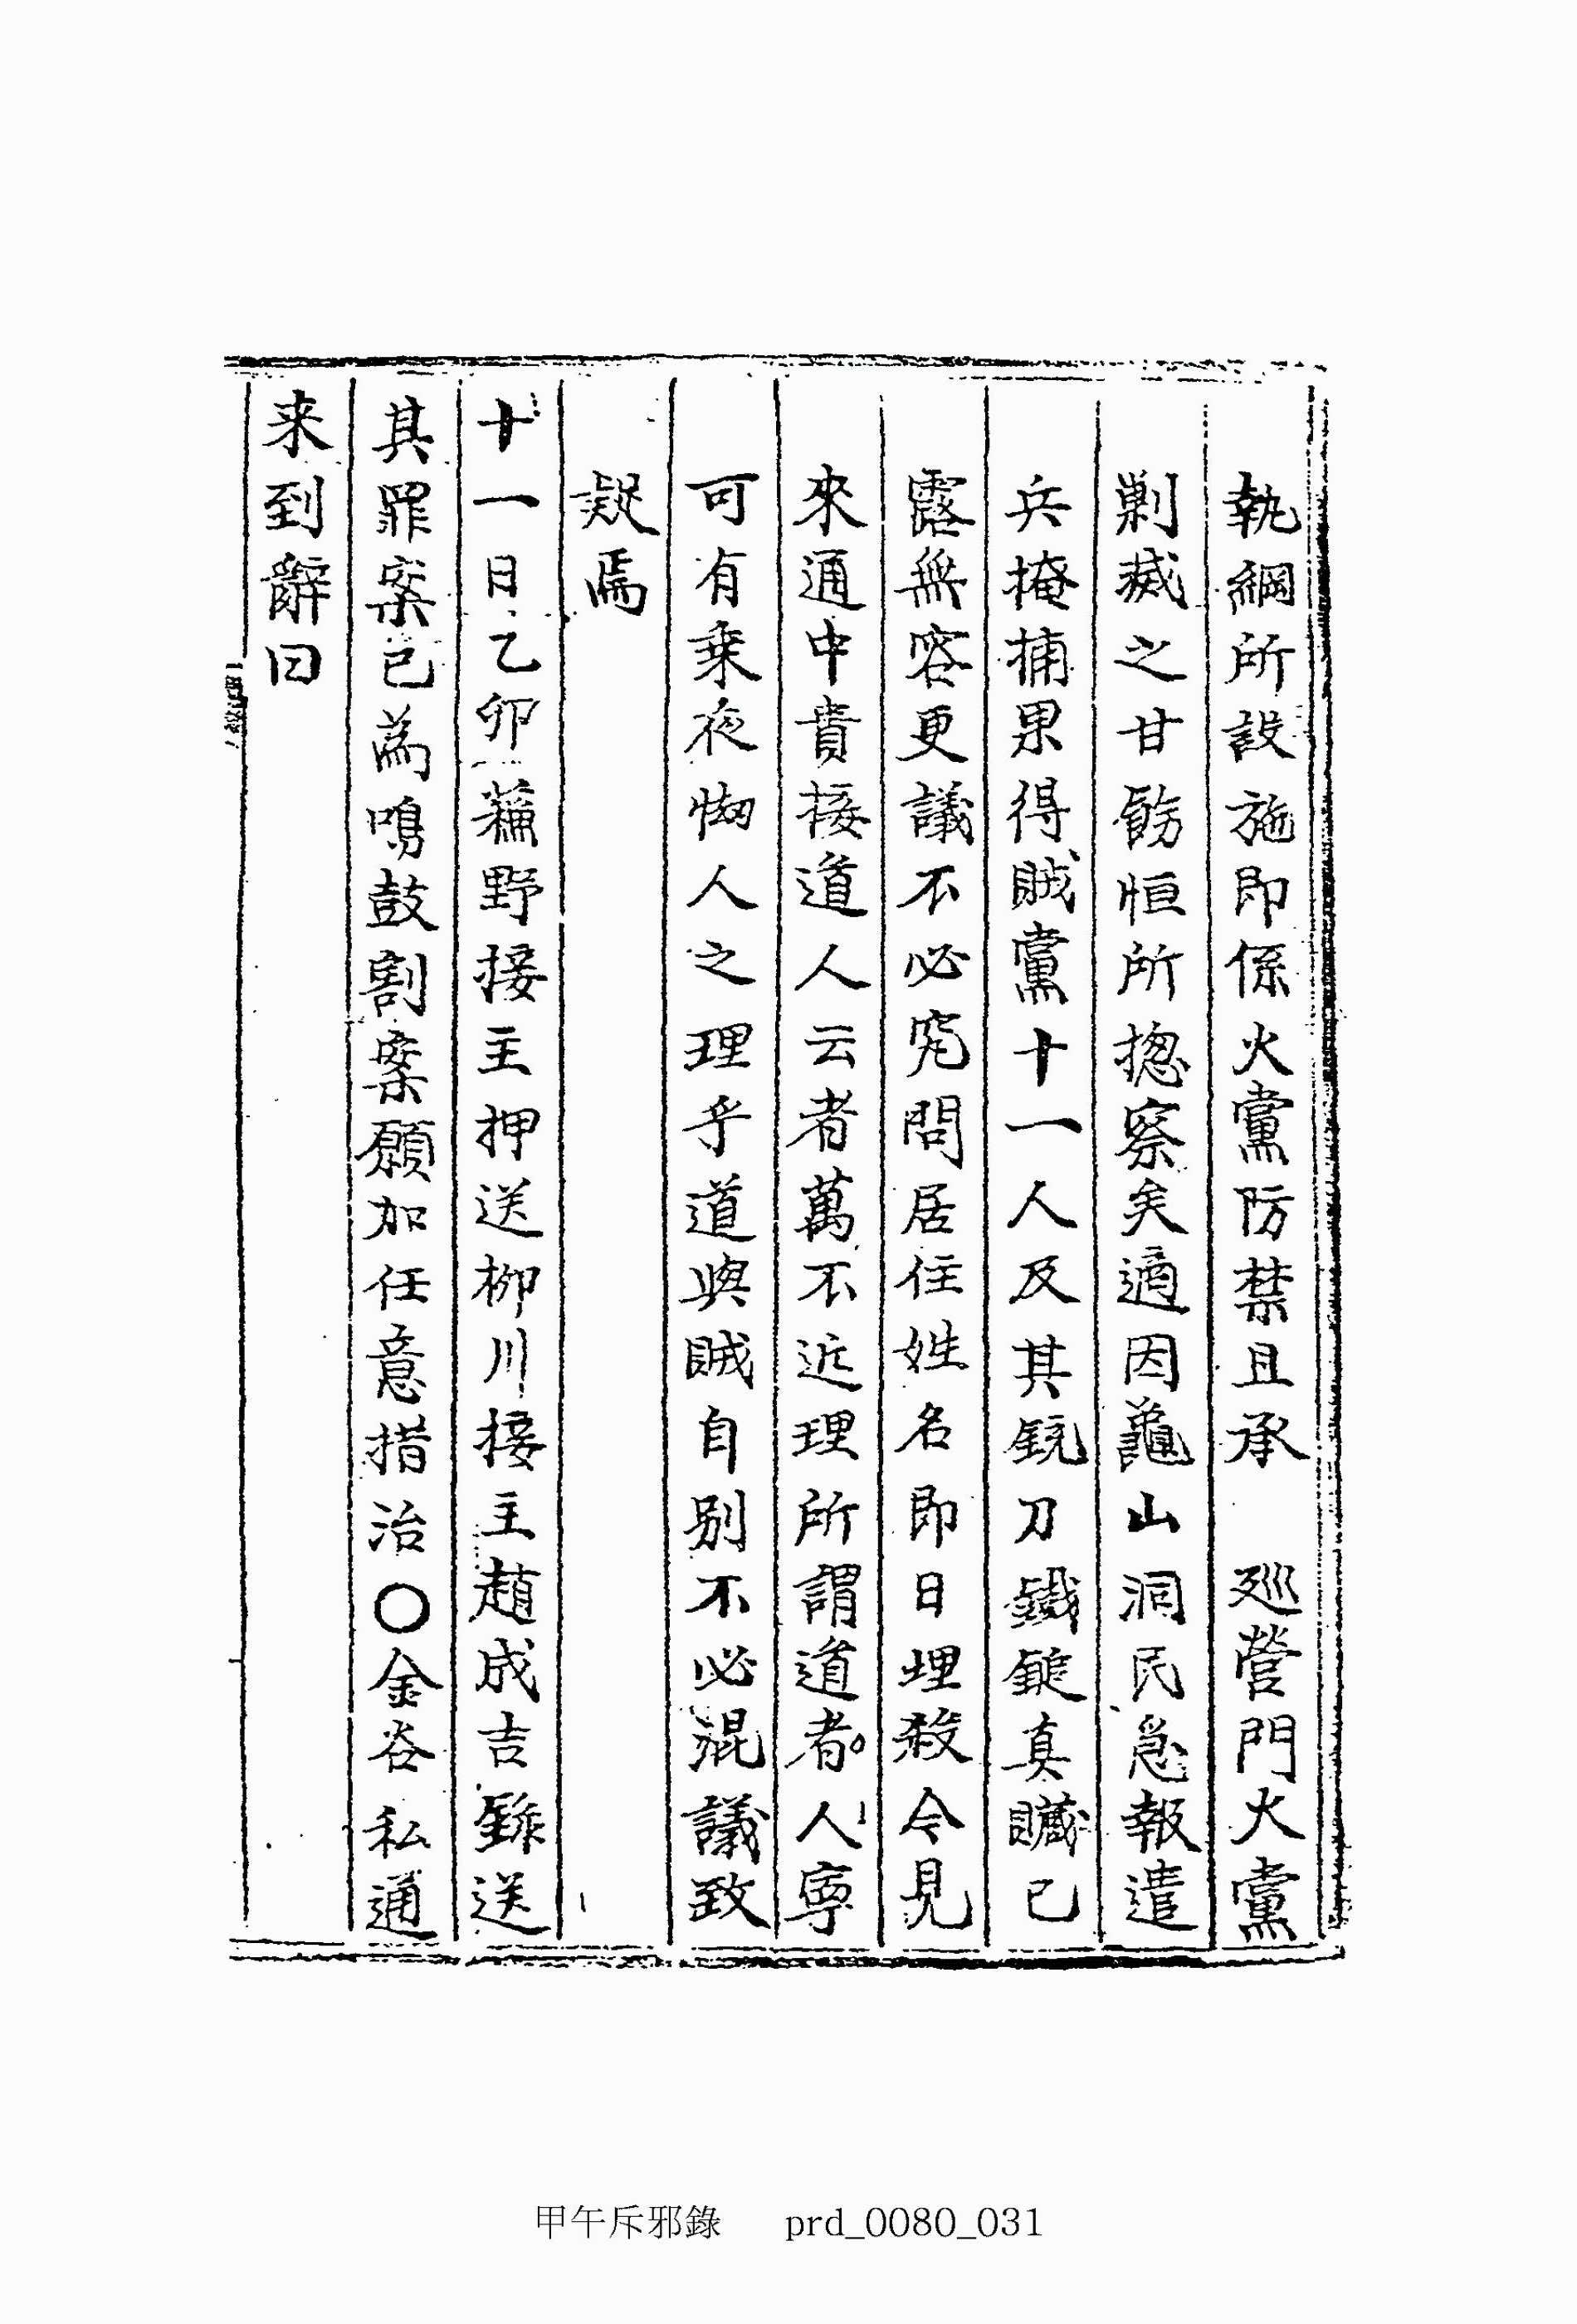 執綱所設施即係火黨防禁且承　廵營門火黨
剿滅之甘飭恒所摠察矣適因龜山洞民急報遣
兵掩捕果得賊黨十一人及其銃刀鐵鎚真贓已
露無容更議不必究問居住姓名即日埋殺今見
來通中貴接道人云者萬不近理所謂道者人寧
可有乗夜惱人之理乎道與賊自別不必混議致
疑焉
十一日乙卯蘓野接主押送柳川接主趙成吉錄送
其罪案已為鳴鼓割案願加任意措治〇金谷私通
来到辭曰
甲午斥邪錄 prd_0080_031